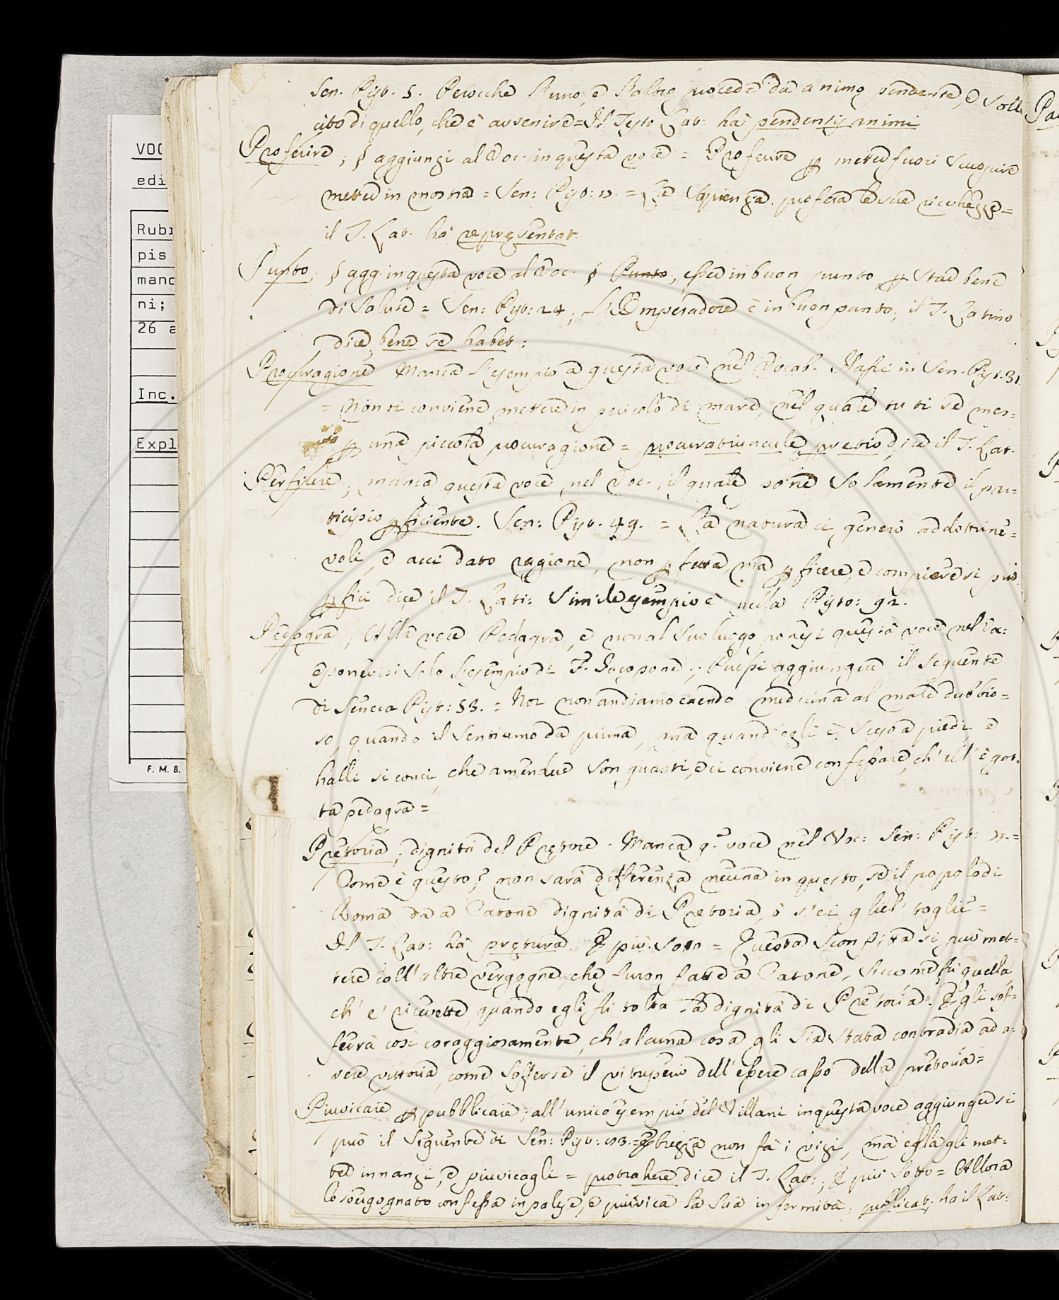 VOC
edi
Rubr
pis
mano
ni;
26 a
Inc.
Expl
F. M. B.
Sen. Pist. 5. Perocche l'uno, e l'altro procede da animo pendente, e solle
cito di quello, che è avvenire = Il Testo Lat. ha pendentis animi
Proferire, si aggiungi al Voc. in questa voce = Proferire per metter fuori scuoprire
metter in mostra = Sen: Pist: = La Sapienza proferra le sue ricchezze =
il T. Lat. ha repręsentat.
Punto, si agg in questa voce al Voc. Punto, esser in buon punto per star bene
di Salute = Sen: Pist: 24, L'Imperadore è in buon punto, il T. Latino
dice, bene se habet:
Procuragione Manca l'esempio a questa voce nel Vocab. Hassi in Sen. Pist. 31
= Non ti conviene mettere in pericolo di mare nel quale tu ti se' mes-
so per una piccola procuragione = procuratiunculę pretio, dice il T. Lat.
Perficere, manca questa voce nel Voc., il quale pone solamente il par-
ticipio perficiente. Sen: Pist. 49. = La natura ci generò addottrine-
voli, e acci dato ragione, non perfetta, ma perficere, e compiere si può
perfici dice il T. Lati: Simile esempio è nella Pisto: 92.
Pedagra, Alla voce Podagra, e non al suo luogo ponesi questa voce nel Voca:
esponevisi solo l'esempio di F. Jacopone; Puossi aggiungere il seguente
di Seneca Pist: 53. = Noi non andiamo caendo medicina al male dubbio-
so, quando il sentiamo da prima, ma quand'egli è sceso a' piedi, e
halli sì conci, che amendue son guasti, e ci conviene confessare, ch'ell'è got-
ta pedagra =
Pretoria, dignità del Pretore. Manca q.ª voce nel Voc: Sen: Pist:
Come è questo? non sarà differenza neuna in questo, se il popolo di
Roma da a Catone dignità di Pretoria, o s'ei gliel toglie =
Il T. Lat: ha prętura. E più sotto = Questa sconfitta si può met-
tere coll'altre vergogne che furon fatte a Catone, siccome fu quella
ch'e' ricevette, quando egli fu tolta la dignità di Pretoria. Egli sof-
ferrà così coraggiosamente, ch'alcuna cosa gli sia stata contradia ad a-
vere vittoria, come sofferse il vituperio dell'essere casso della pretoria =
Piuvicare per pubblicare, all'unico esempio del Villani in questa voce aggiunger si
può il seguente di Sen: Pist: non fa i vizi, ma ella gli met-
te innanzi, e piuvicagli = protrahere dice il T. Lat:, E più sotto = Allora
lo svergognato confessa in palese, e piuvica la sua infermità, publicat, ha il Lat: